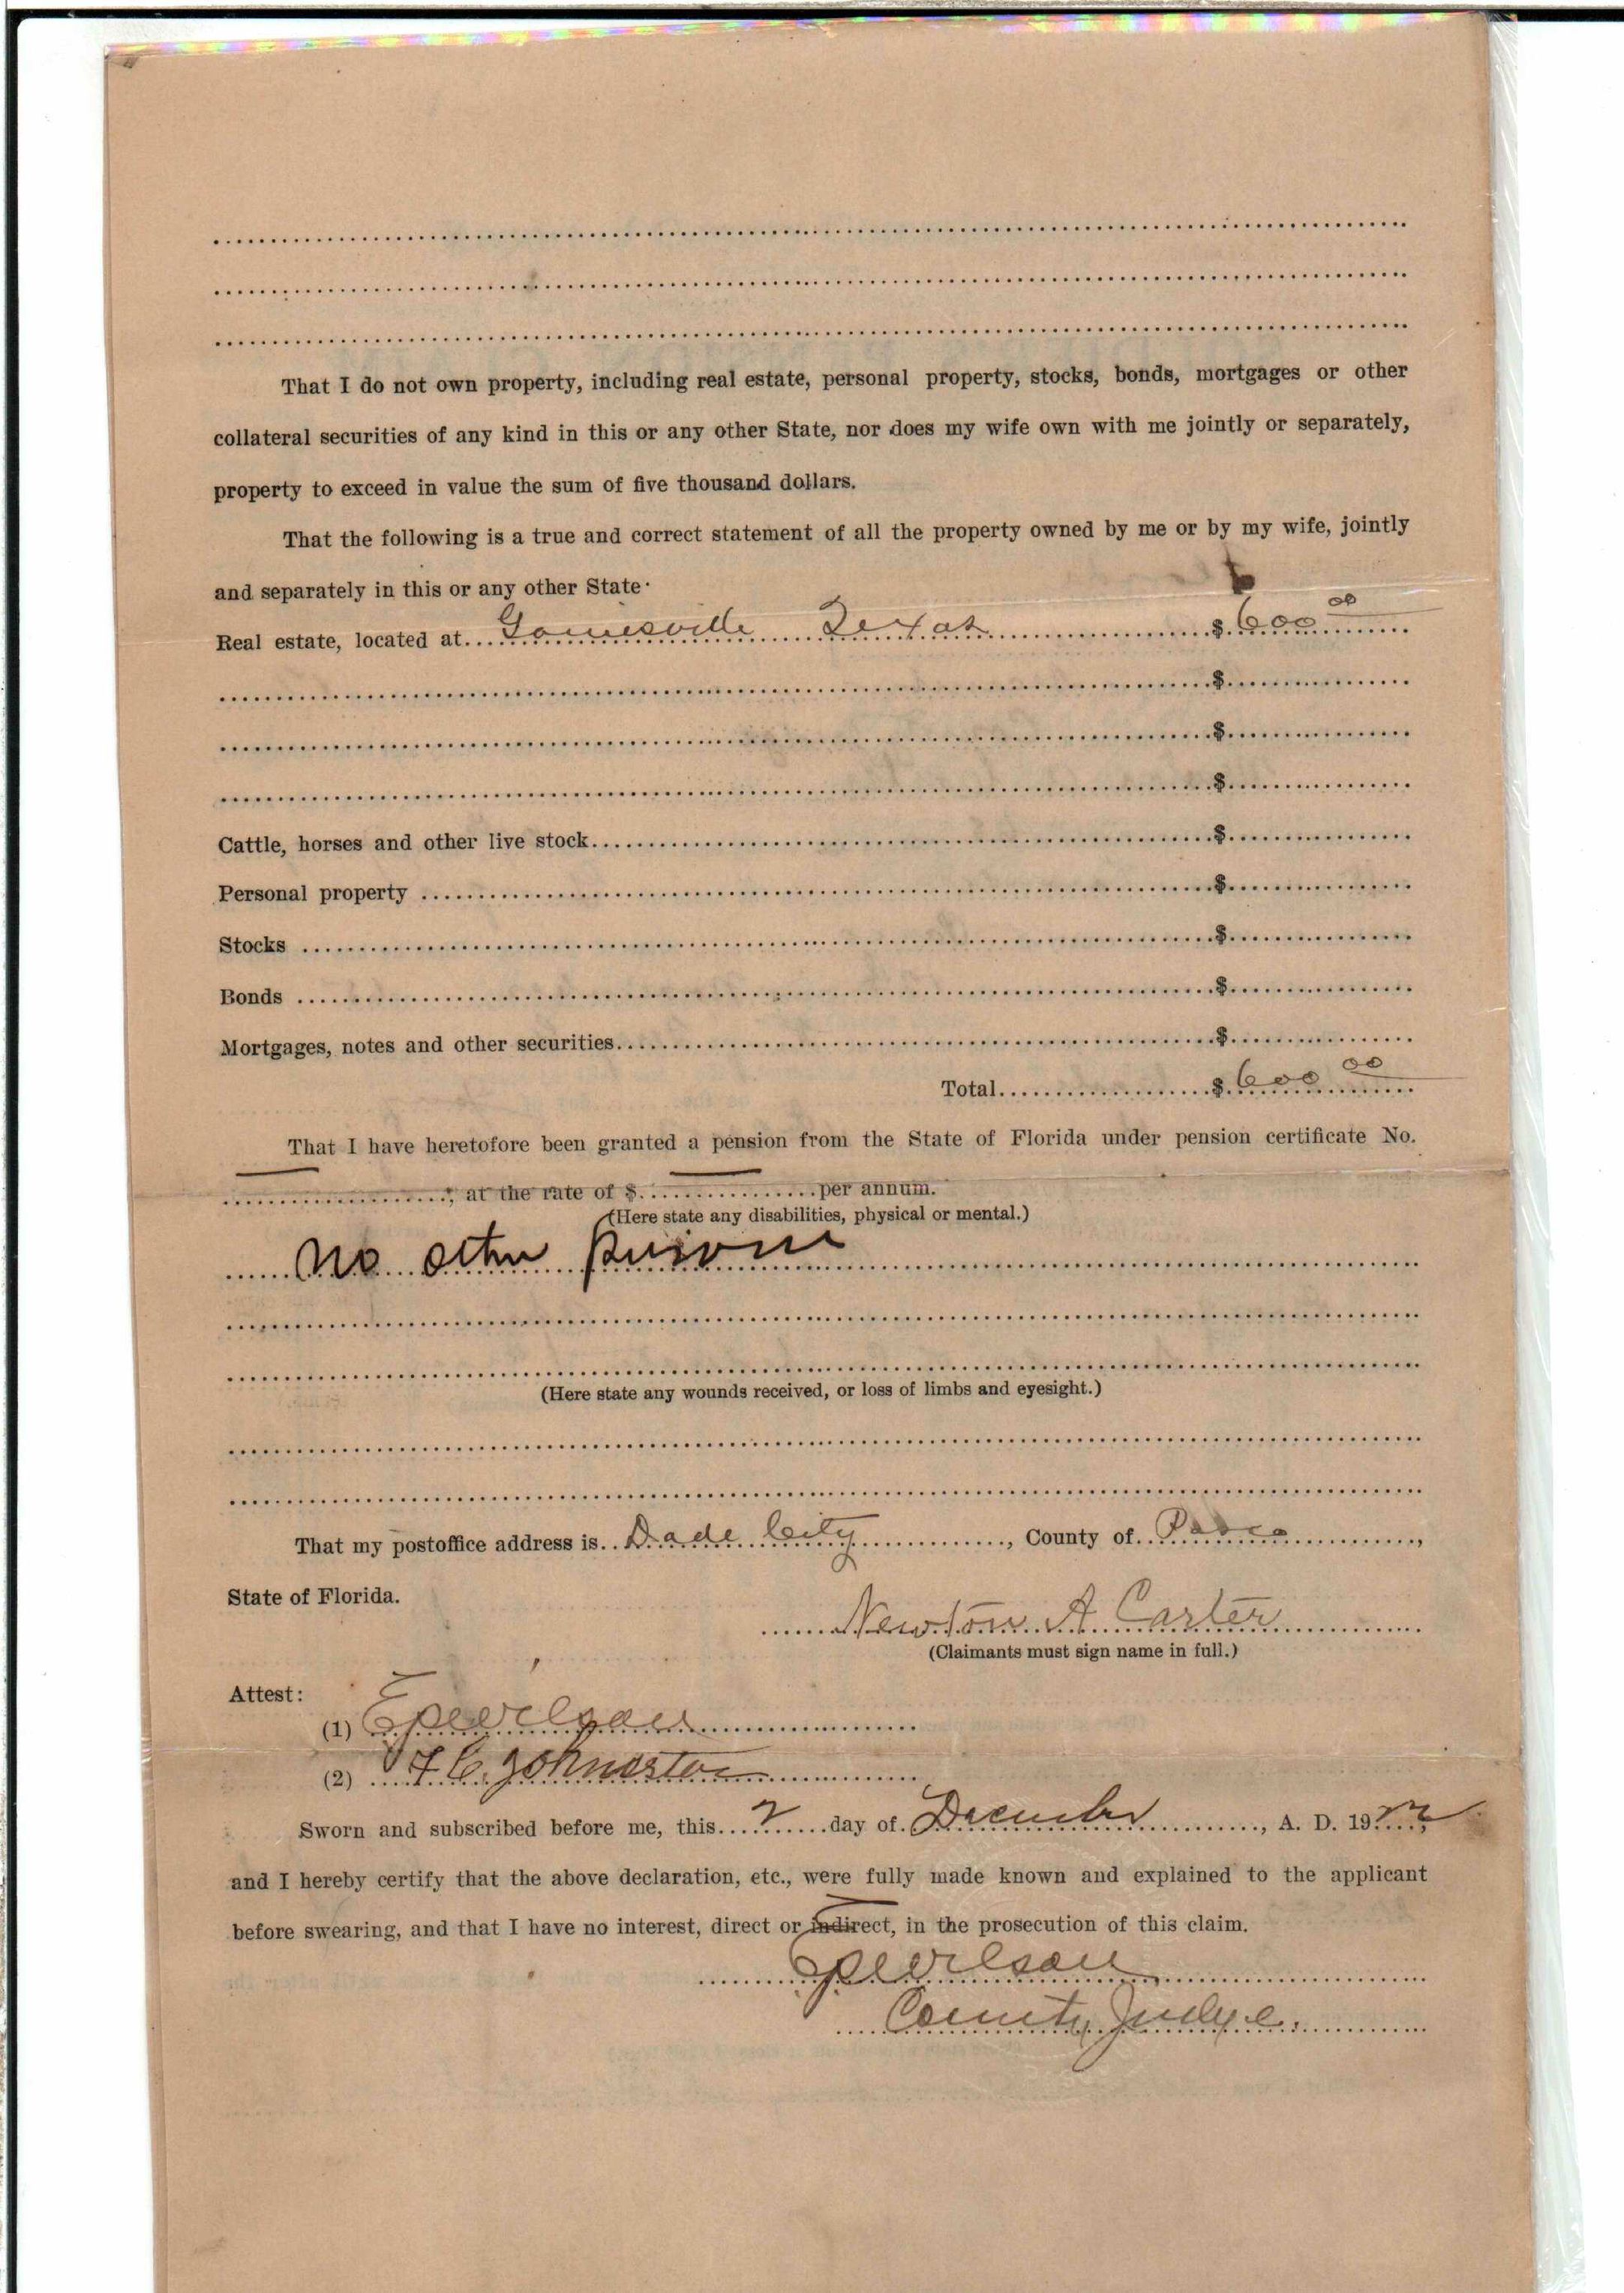 That I do not own property, including real estate, personal property, stocks, bonds, mortgages or other
collateral securities of any kind in this or any other State, nor does my wife own with me jointly or separately,
property to exceed in value the sum of five thousand dollars.
That the following is a true and correct statement of all the property owned by me or by my wife, jointly
and separately in this or any other State·
Real estate, located at Gainesville Texas $ 600 00
$
$
$
Cattle, horses and other live stock $
Personal property $
Stocks $
Bonds $
Mortgages, notes and other securities $
Total $ 600 00
That I have heretofore been granted a pension from the State of Florida under pension certificate No.
, at the rate of $ per annum.
(Here state any disabilities, physical or mental.)
No other
(Here state any wounds received, or loss of limbs and eyesight.)
That my postoffice address is Dade City, County of Pasco,
State of Florida.
Newton A Carter
(Claimants must sign name in full.)
Attest:
(1)
(2) Johnston
Sworn and subscribed before me, this 2 day of December, A. D. 1922,
and I hereby certify that the above declaration, etc., were fully made known and explained to the applicant
before swearing, and that I have no interest, direct or indirect, in the prosecution of this claim.
County Judge.